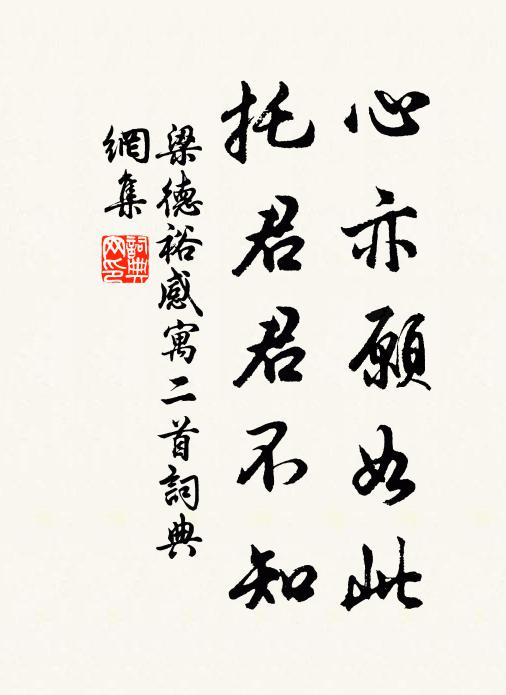 心亦願如此
托君君不知
梁德裕感寓二首詞典
網集
詞典
网印